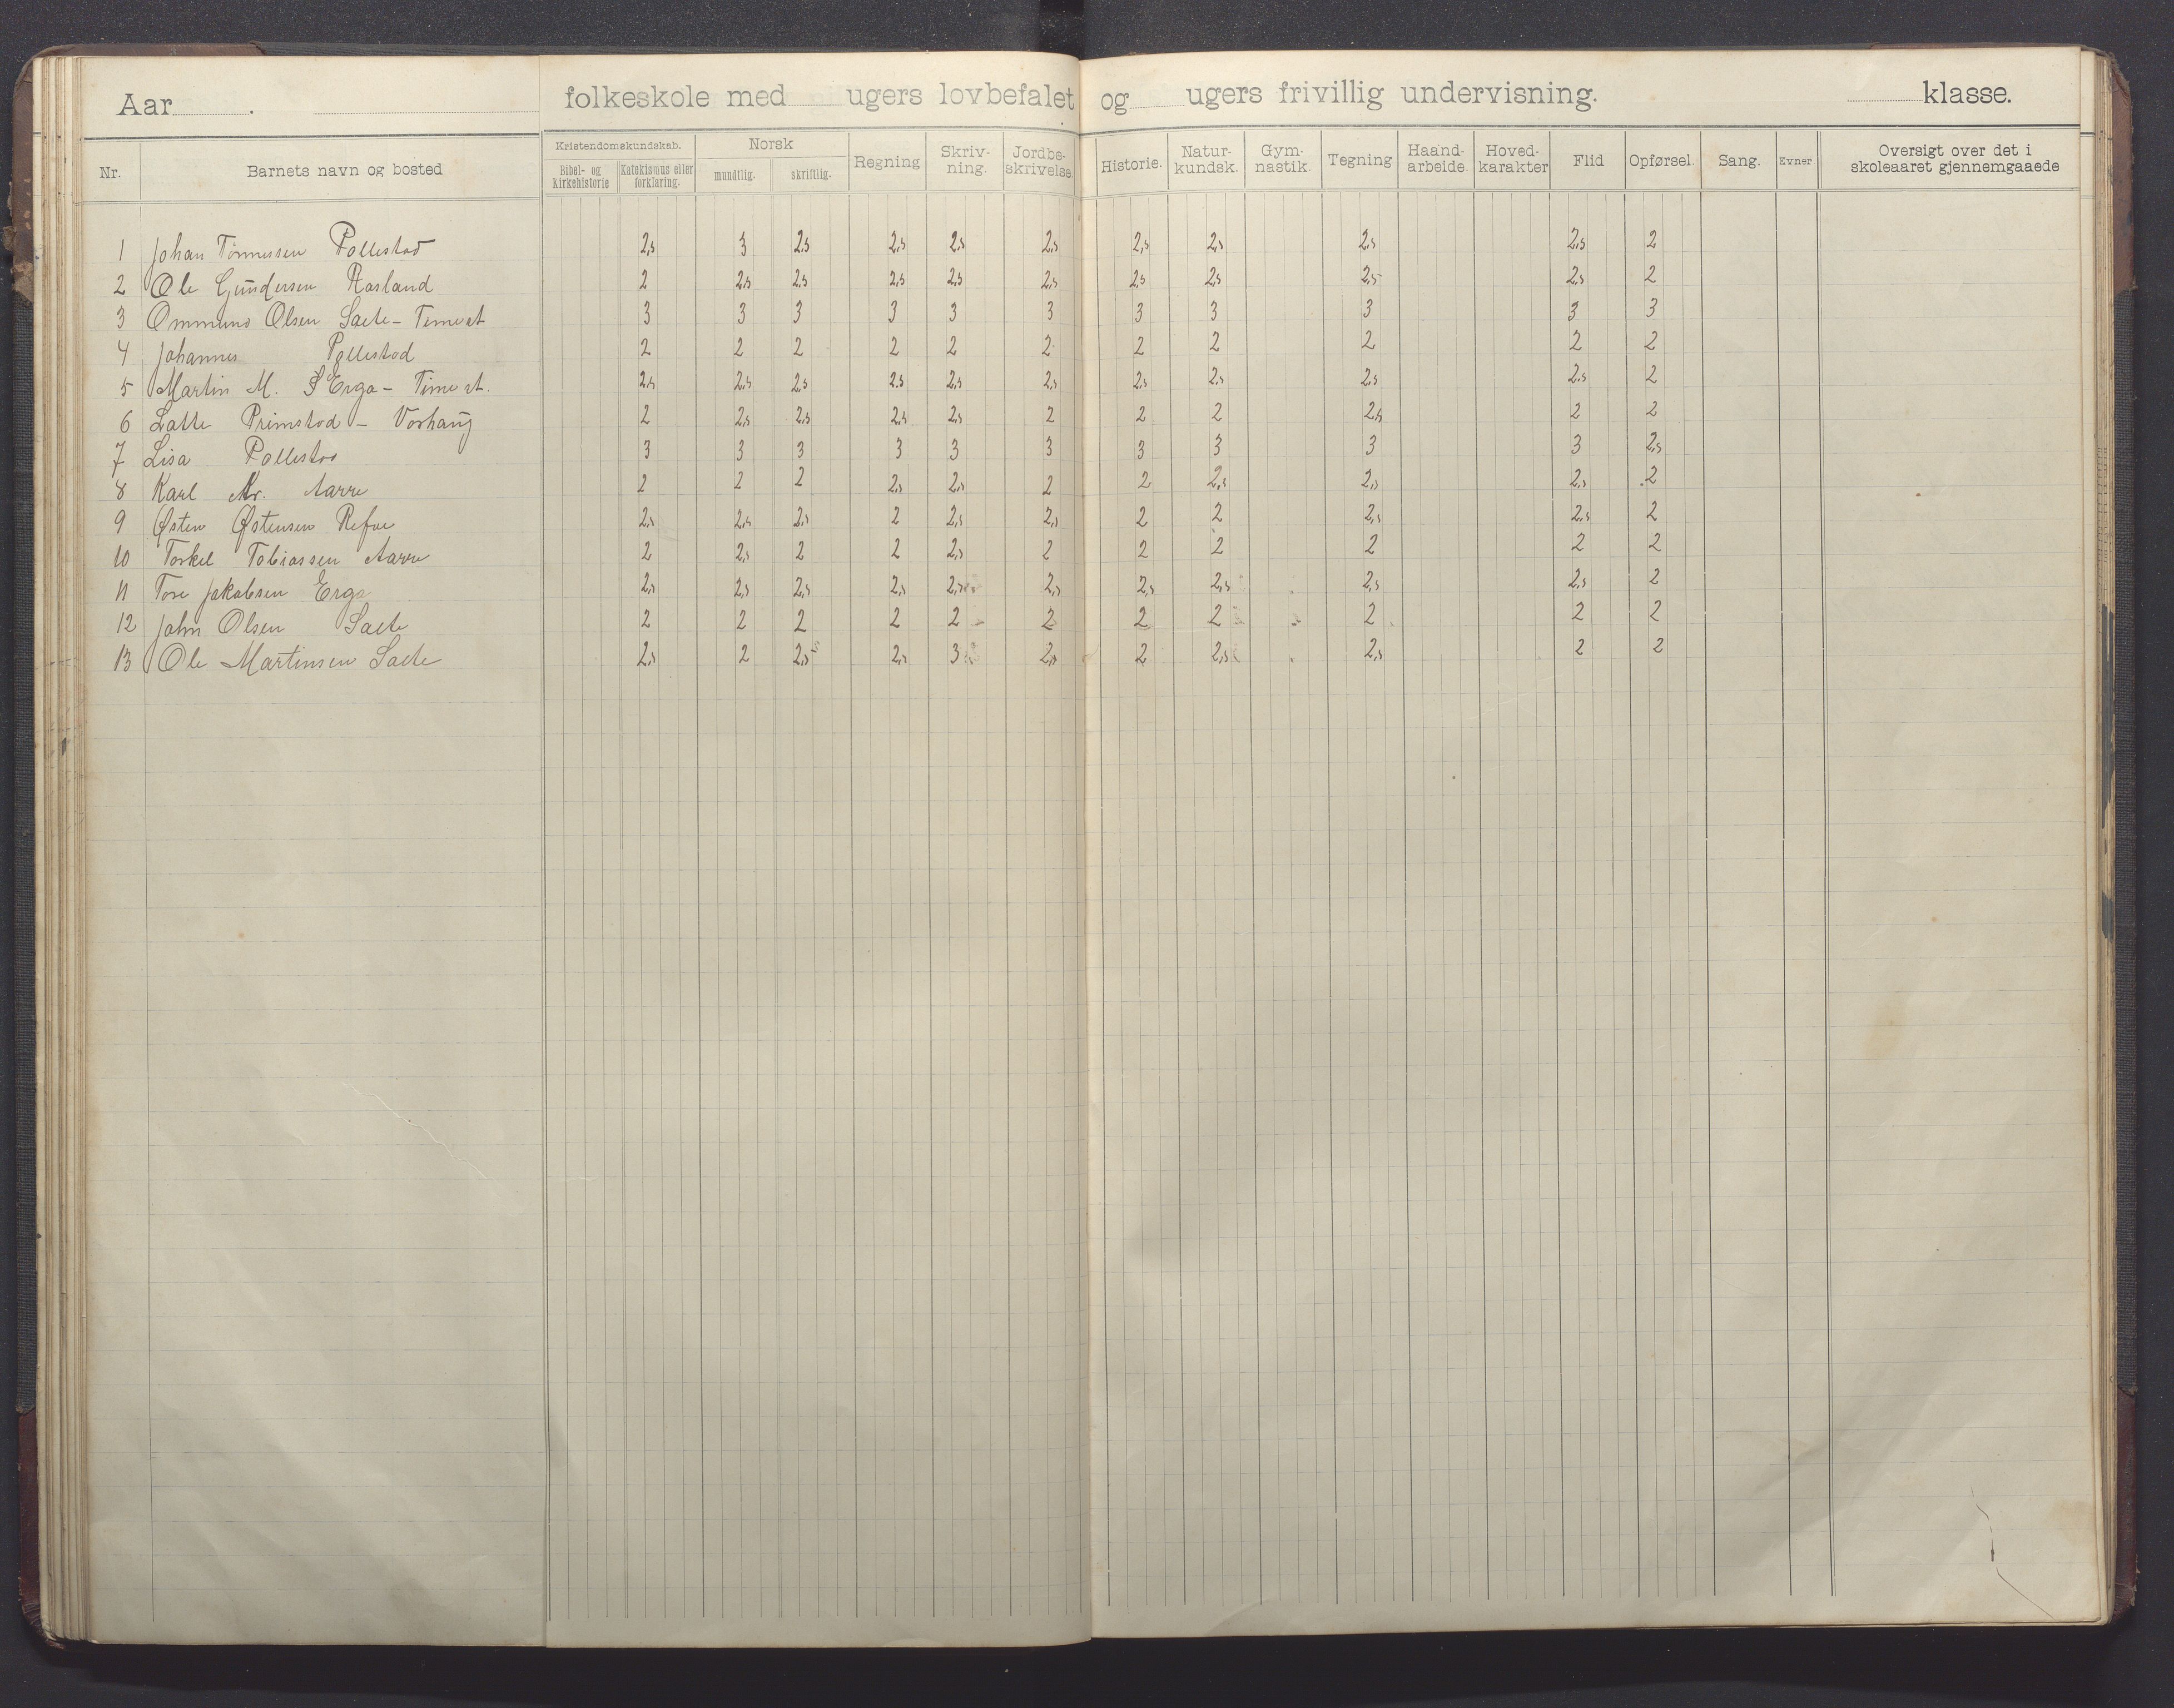 Aar . folkeskole med ugers lovbefalet og ugers frivillig undervisning. klasse.
Nr. Barnets navn og bosted Kristendomskundskab. Bibel- og Kirkehistorie Katekismus eller forklaring. Norsk mundtlig. skriftlig. Regning Skriv-ning. Jordbe-skrivelse. Historie. Natur-kundsk. Gym-nastik. Tegning Haand-arbeide. Hoved-karakter Flid Opførsel. Sang. Evner Oversigt over det i skoleaaret gjennemgaaede
1 Johan Tønnessen Pollestad 2,5 3 2,5 2,5 2,5 2,5 2,5 2,5 2,5 2,5 2
2 Ole Gundersen Rosland 2 2,5 2,5 2,5 2,5 2,5 2,5 2,5 2,5 2,5 2
3 Ommund Olsen Saele - Time st 3 3 3 3 3 3 3 3 3 3 3
4 Johannes Pollestad 2 2 2 2 2 2 2 2 2 2 2
5 Martin M. Erga - Time st. 2,5 2,5 2,5 2,5 2,5 2,5 2,5 2,5 2,5 2,5 2
6 Lalle Primstad - Vorhaug 2 2,5 2,5 2,5 2,5 2 2 2 2,5 2 2
7 Lisa Pollestad 3 3 3 3 3 3 3 3 3 3 2,5
8 Karl Kr. Aarre 2 2 2 2,5 2,5 2 2 2,5 2,5 2,5 2
9 Østen Østensen Refve 2,5 2,5 2,5 2 2,5 2,5 2 2 2,5 2,5 2
10 Torkel Tobiassen Aarre 2 2,5 2 2 2,5 2 2 2 2 2 2
11 Tore Jakobsen Erga 2,5 2,5 2,5 2,5 2,5 2,5 2,5 2,5 2,5 2,5 2
12 John Olsen Saele 2 2 2 2 2 2 2 2 2 2 2
13 Ole Martinsen Saele 2,5 2 2,5 2,5 3 2,5 2 2,5 2,5 2 2